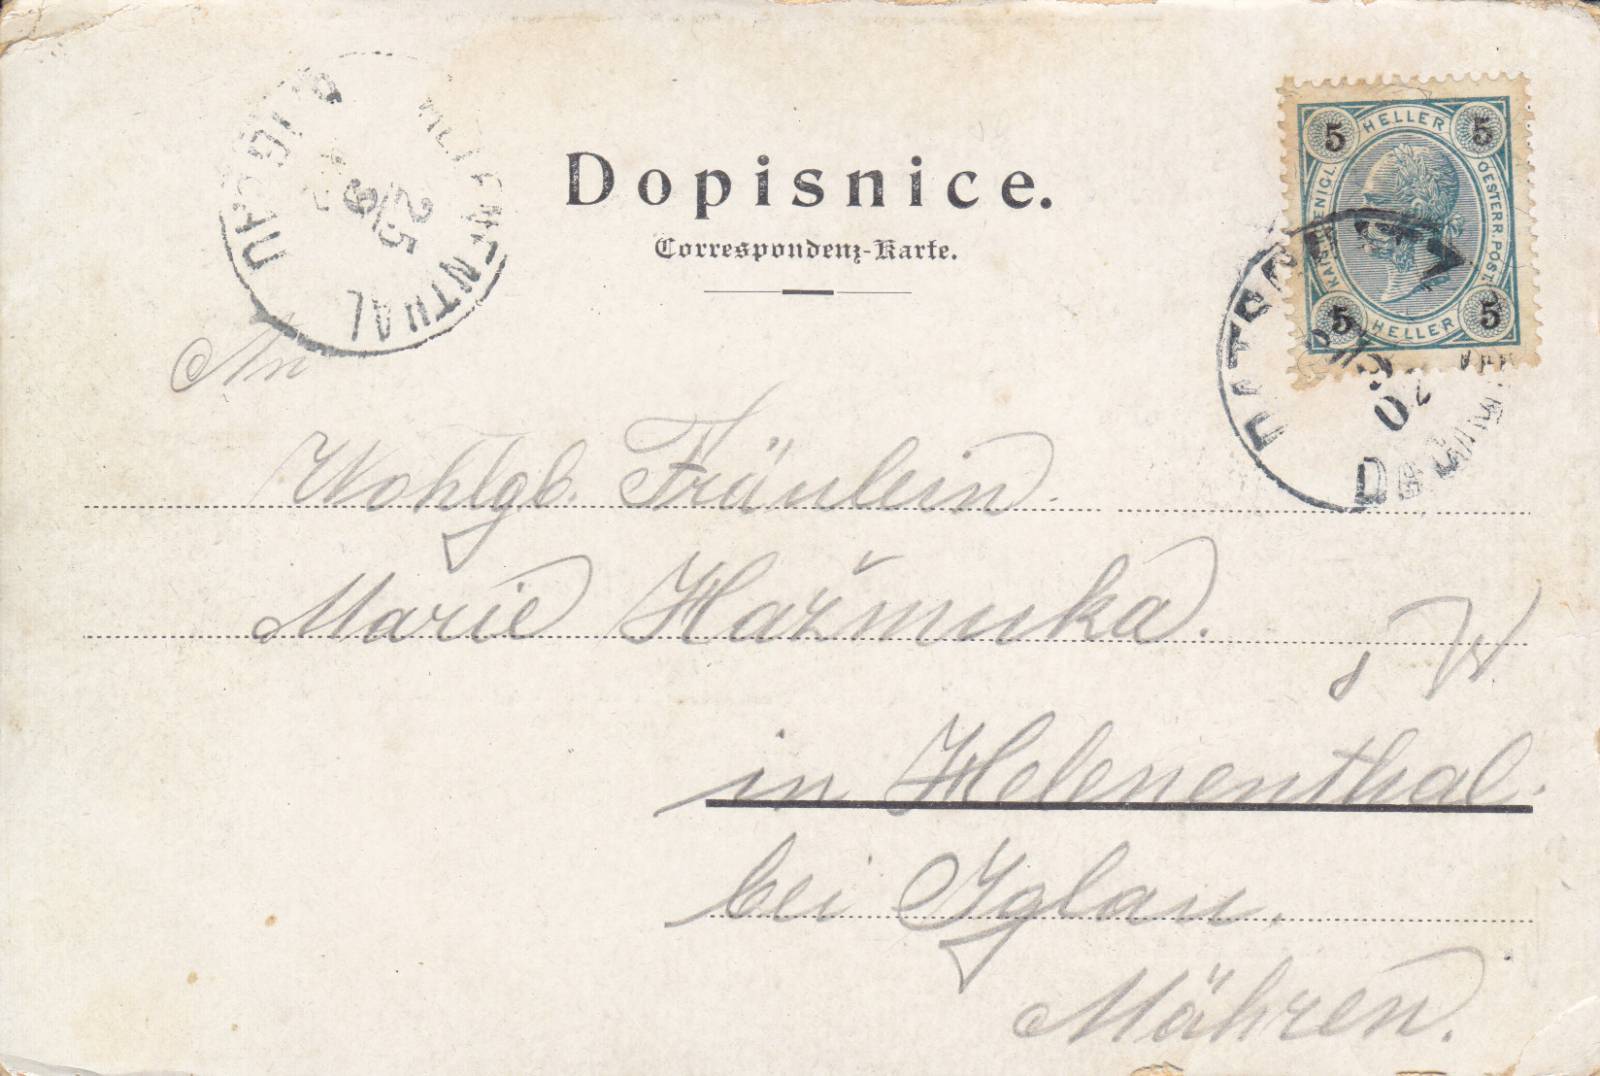 Dopisnice.
Correspondenz-Karte.
5 HELLER 5
KAIS. KÖNIGL. OESTERR. POST.
5 HELLER 5
25
9
An
Wohlgb. Fräulein.
Marie Hažmuka.
in Helenenthal.
bei Iglau.
Mähren.